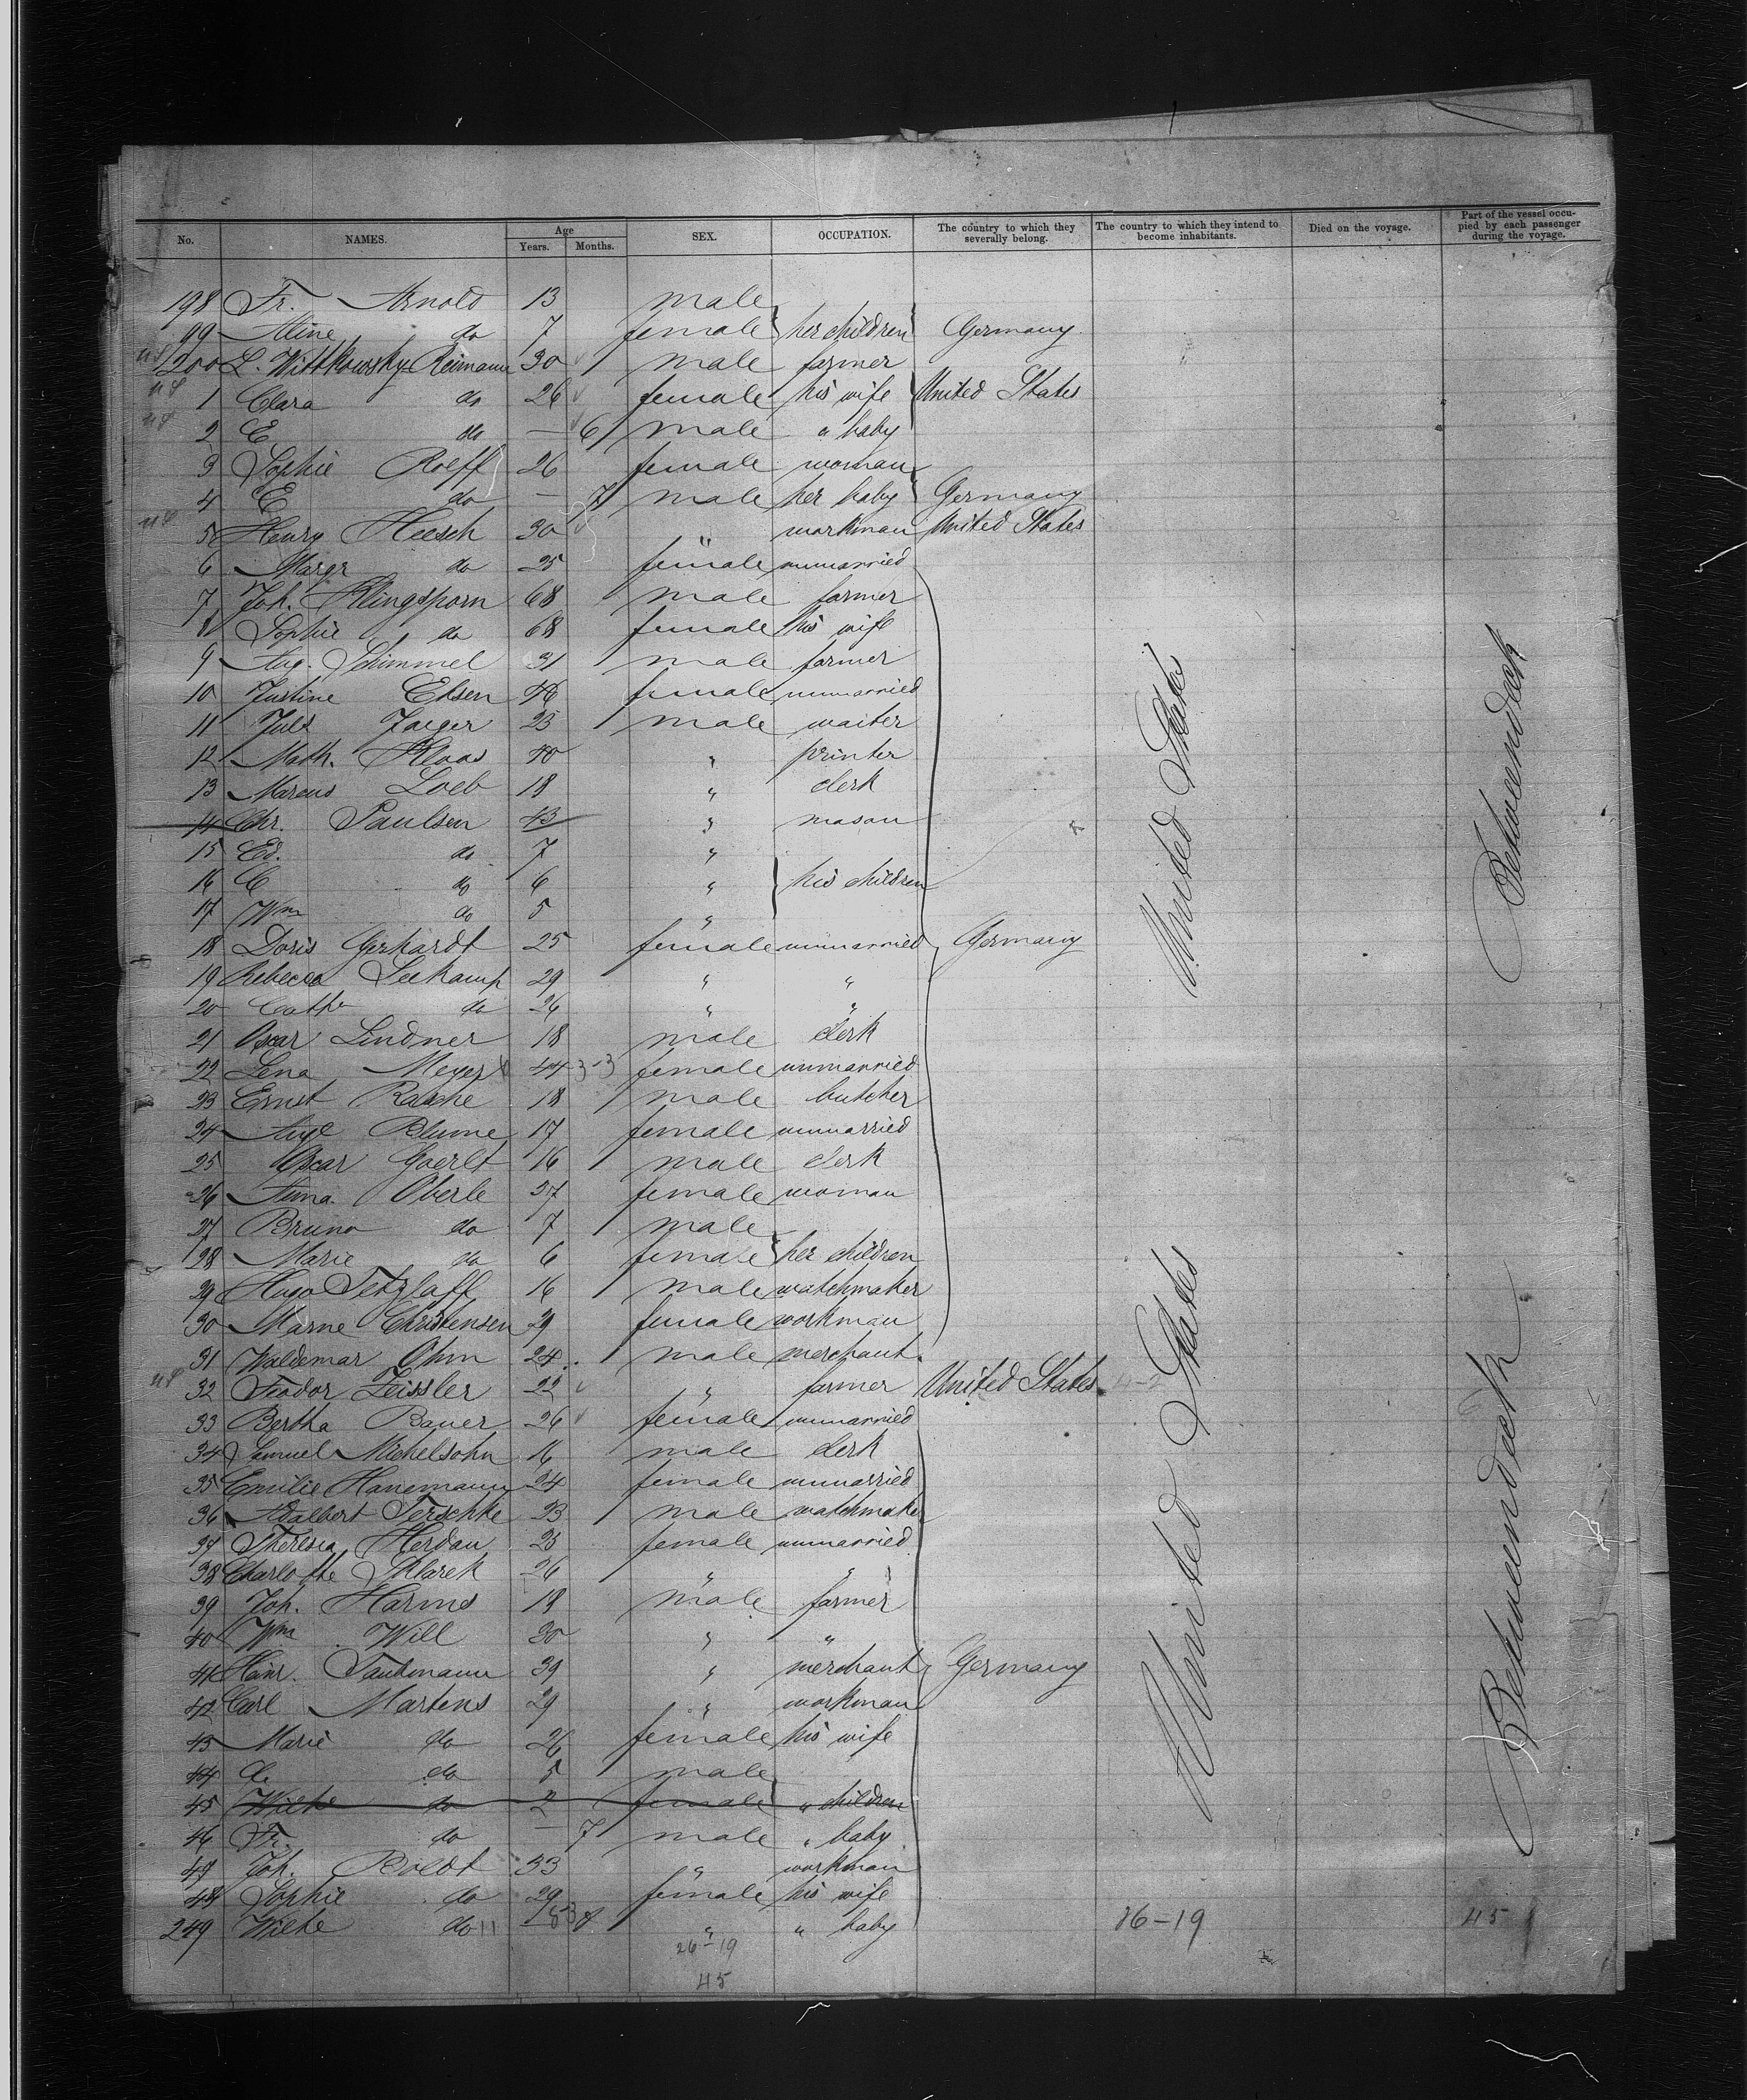 No. NAMES. Age Years. Months. SEX. OCCUPATION. The country to which they severally belong. The country to which they intend to become inhabitants. Died on the voyage. Part of the vessel occupied by each passenger during the voyage.
198 Fr. Arnold 13 male
99 Aline do 7 female her children Germany
200 L. Wittkowsky Reimann 30 male farmer
1 Clara do 26 female his wife United States
2 E do — 6 male " baby
3 Sophie Roeff 26 female woman
4 E do — 7 male her baby Germany
5 Henry Heesch 30 " workman United States
6 Margr do 25 female unmarried
7 Joh. Klingsporn 68 male farmer
8 Sophie do 68 female his wife
9 Aug. Schimmel 31 male farmer
10 Justine Ehsen female unmarried
11 Juls Jaeger 23 male waiter
12 Math. Kloos 40 " printer
13 Marcus Loeb 18 " clerk
14 Chr. Paulsen 43 " mason
15 Ed. do 7 "
16 C do 6 " his children
17 Wm do 5 "
18 Doris Gerhardt 25 female unmarried Germany
19 Rebecca Seekamp 29 " "
20 Cathr do 26 " "
21 Oscar Lindner 18 male clerk
22 Lena Meyer 44 3-3 female unmarried
23 Ernst Rasche 18 male butcher
24 Auge Blume 17 female unmarried
25 Oscar Goerlt 16 male clerk
26 Anna Oberle 37 female woman
27 Bruno do 7 male
28 Marie do 6 female her children
29 Hugo Tetzlaff 16 male watchmaker
30 Marne Christensen 29 female workman
31 Waldemar Ohm 24 male merchant
32 Feodor Zeissler 22 " farmer United States
33 Bertha Bauer 26 female unmarried
34 Samuel Michelsohn 16 male clerk
35 Emilie Hanemann 24 female unmarried
36 Adalbert Terschke 23 male watchmaker
37 Theresia Herdan 23 female unmarried
38 Charlotte Klarek 26 " "
39 Joh. Harms 18 male farmer
40 Wm Will 30 " "
41 Heinr. Tautmann 39 " merchant Germany
42 Carl Martens 29 " workman
43 Marie do 26 female his wife
44 do 5 male
45 Wilhe do 2 female " children
46 Fr. do — 7 male " baby
47 Joh. Boldt 33 " workman
48 Sophie do 29 female his wife
249 Wilhe do 11 8 " " baby
United States
Betweendeck
United States
Betweendeck
26-19
45
26-19
45